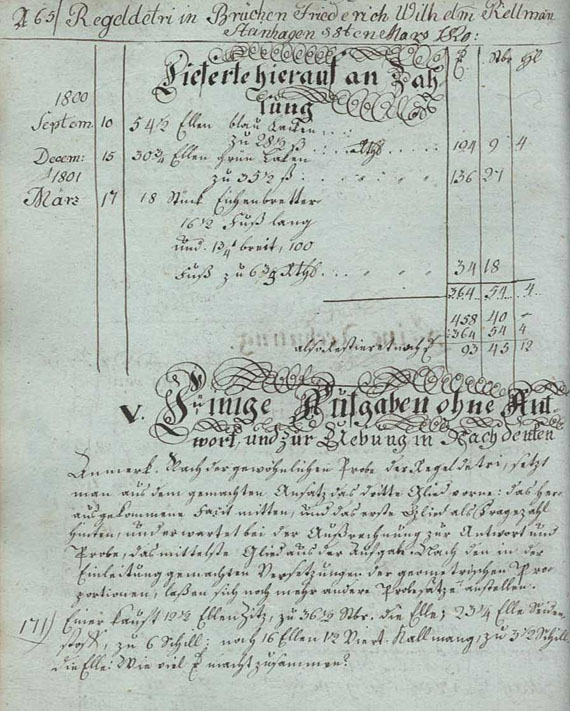 265/ Regeldetri in Brüchen Friederich Wilhelm Kellman
Stavenhagen 8ten März
Lieferte hierauf an Zah-
lung
1800
Septem. 10 54 1/2 Ellen blau Lacken
zu 28 1/2 ß Rthl 194 9 4
Decem: 15 30 3/4 Ellen Grün Laken
zu 35 1/2 ß 136 21
1801
März 17 18 Stück Eichenbretter
16 1/2 Fuß lang
und 1 3/4 breit, 100
Fuß zu 6 3/4 Rthl 34 18
364 54 4
458 40 -
364 54 4
also Restieret noch 93 45 12
V. Einige Aufgaben ohne Ant-
wort, und zur Uebung in Nachdenken
Anmerk. Nach der gewöhnlichen Probe der Regeldetri, setzt
man aus dem gemachten Ansatz das dritte Glied vorne: das her-
ausgekommene Facit mitten, und das erste Glied als Fragezahl
hinten, und erwartet bei der Außrechnung zur Antwort und
Probe, das mittelste Glied aus der Aufgabe. Nach den in der
Einleitung gemachten Versetzungen der geometrischen Pro-
portionen, laßen sich noch mehr andere Probesätze anstellen.
171/ Einer kauft 19 1/2 Ellen Zitz, zu 36 1/2 Stbr. die Elle; 23 3/4 Elle Seiden-
stoff, zu 6 Schill; noch 16 Ellen 1 1/2 Viert. Kallmang, zu 3 1/2 Schill
die Elle: Wie viel macht zusammen?